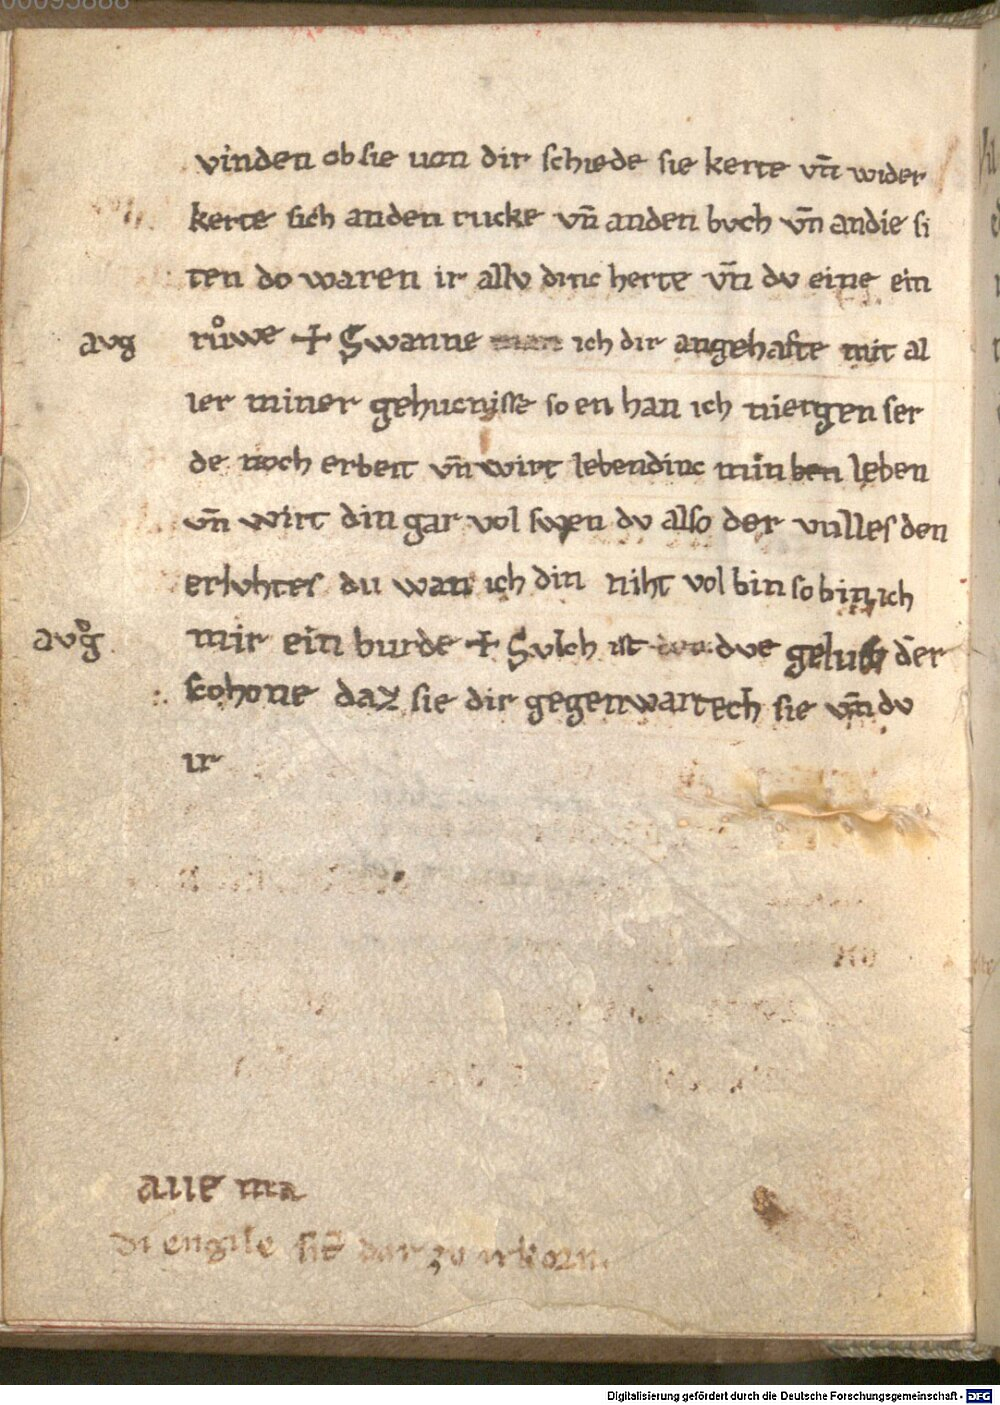 00095888
vinden ob sie uon dir schiede sie kerte vn̄ wider
kerte sich anden rucke vn̄ anden bvch vn̄ andie si
ten do waren ir allv dinc herte vn̄ dv eine ein
avg růwe + Swanne man ich dir angehafte mit al
ler miner gehucnisse so en han ich niergen ser
de noch erbeit vn̄ wirt lebendinc min ben leben
vn̄ wirt din gar vol swen dv also der vulles den
erlvhtes du wan ich din niht vol bin so bin ich
avg̊ mir ein burde + Svlch ist dve der
scohone daz sie dir gegenwartech sie vn̄ dv
ir
aue ma
di engile sīt dar zu irkorn.
Digitalisierung gefördert durch die Deutsche Forschungsgemeinschaft - DFG